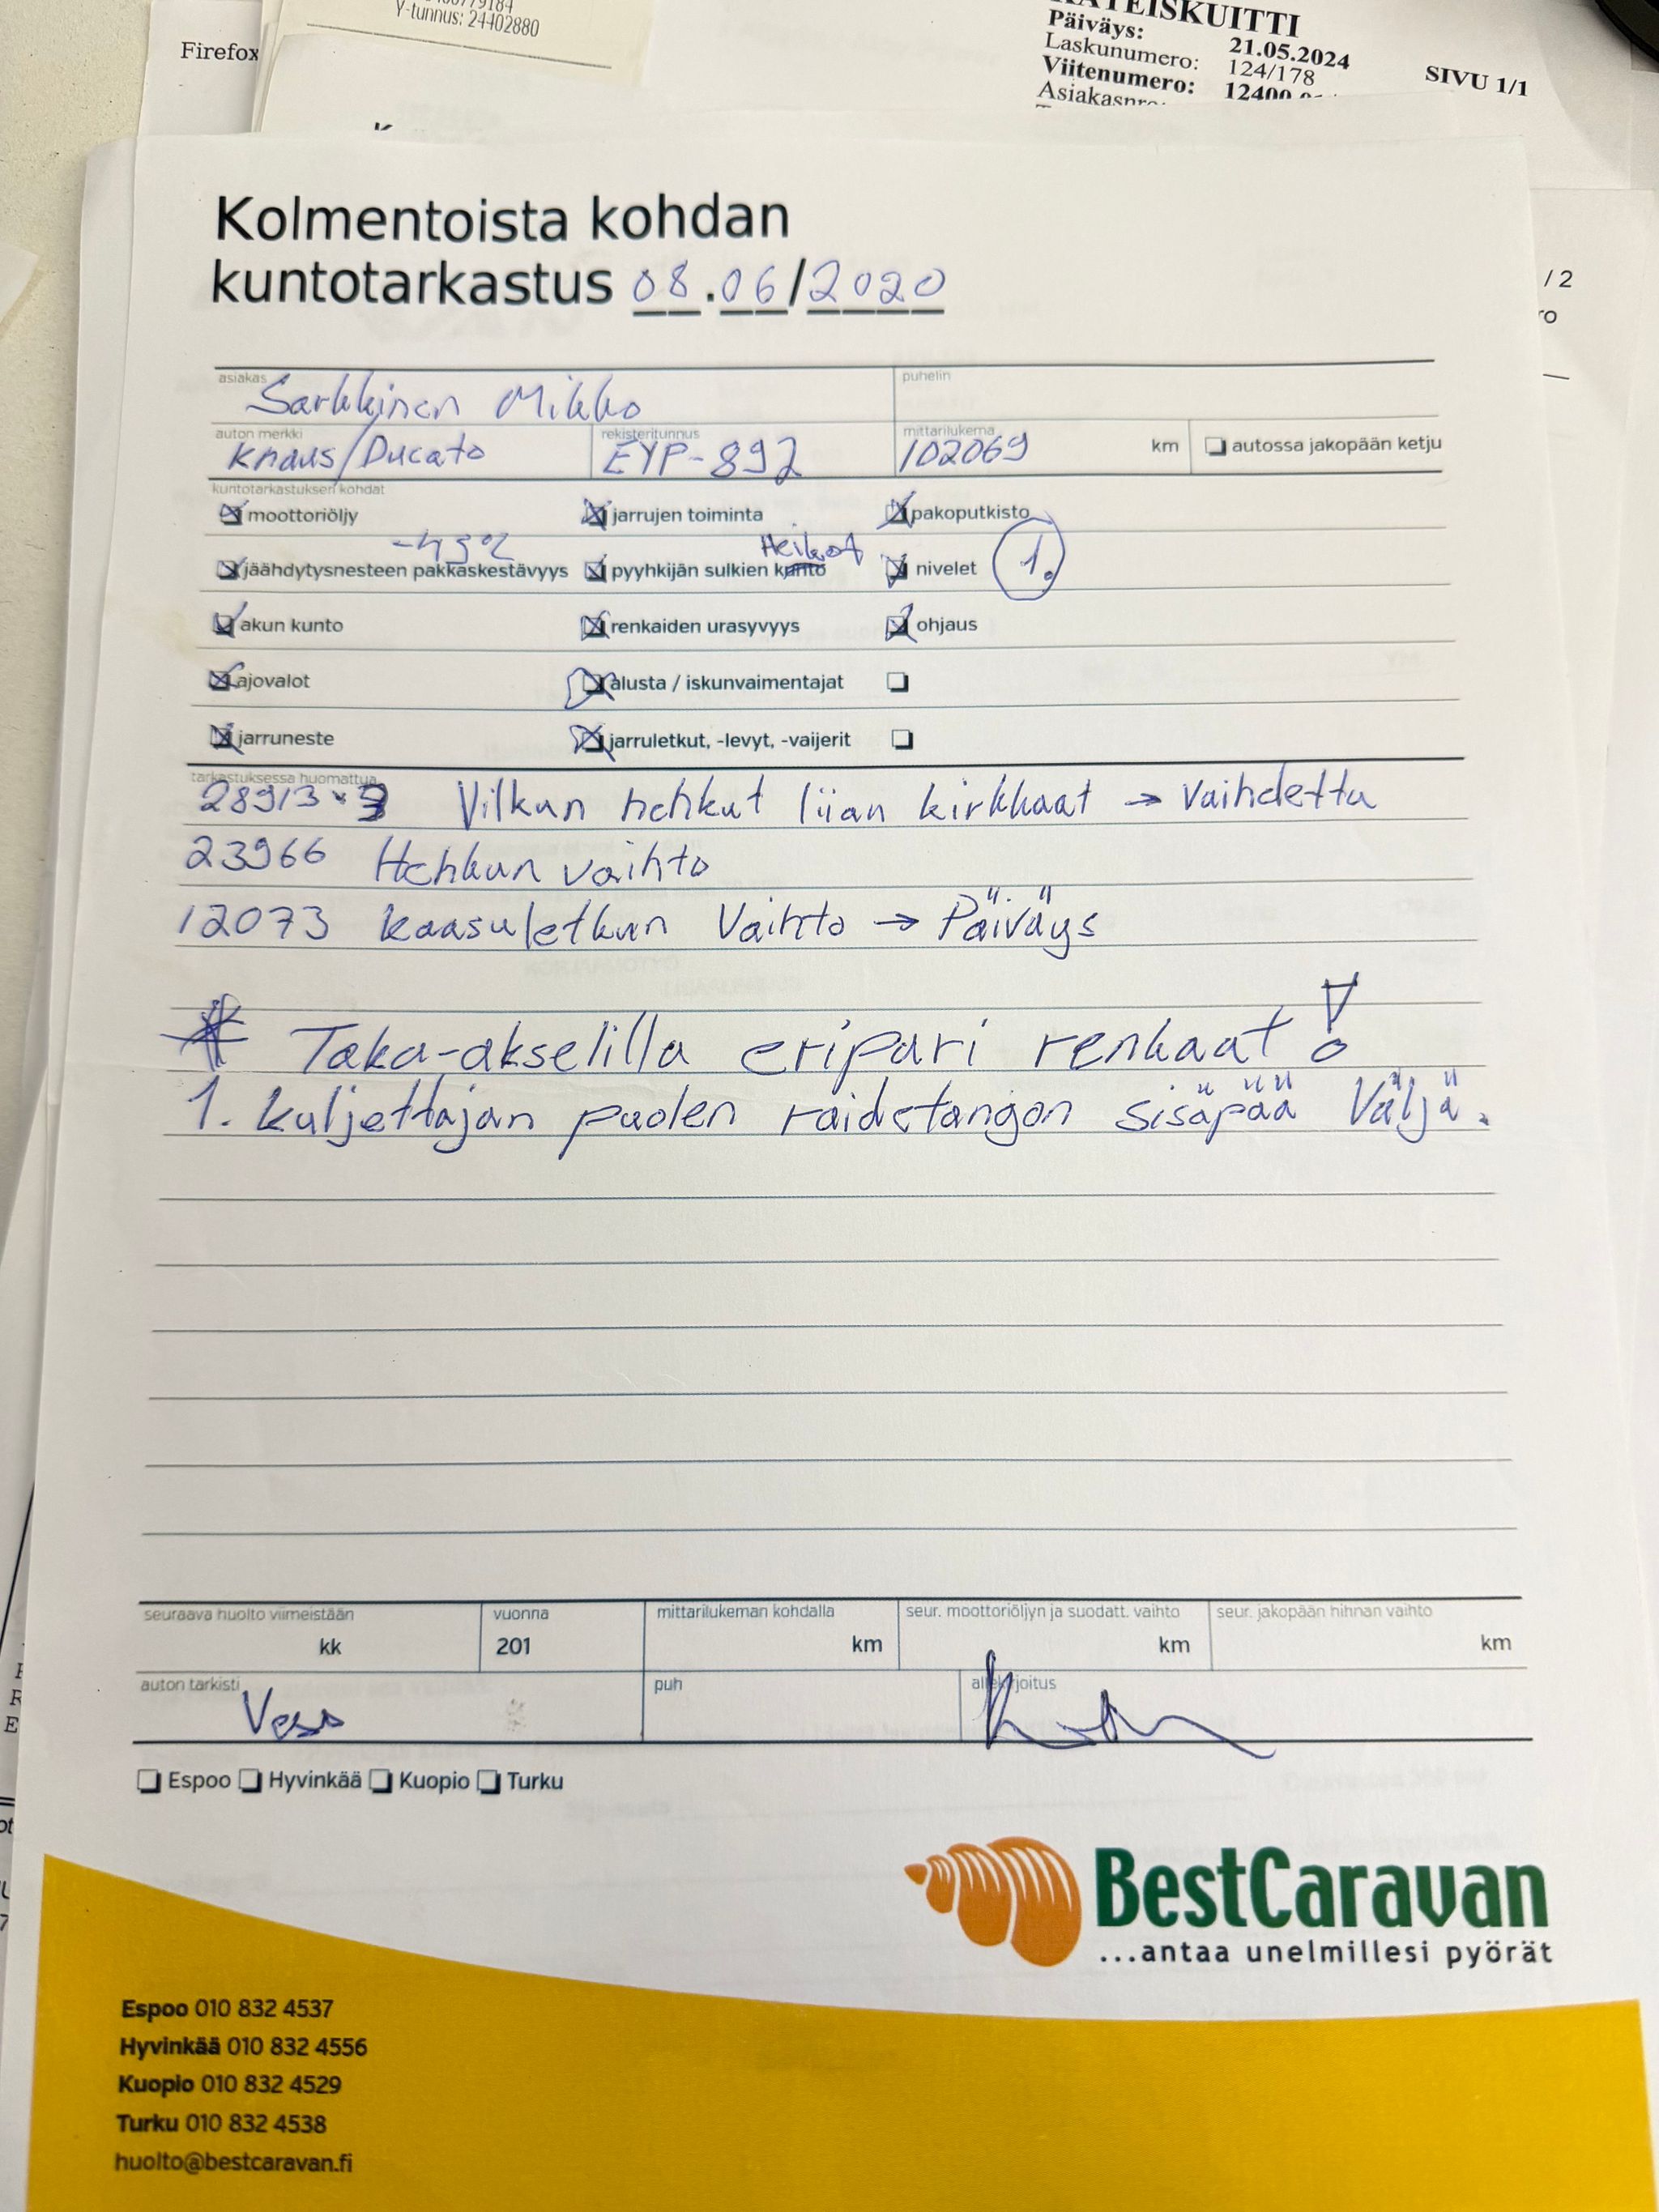 Y-tunnus: 24402880
Firefox
KÄTEISKUITTI
Päiväys: 21.05.2024
Laskunumero: 124/178
Viitenumero: 12400
SIVU 1/1
Asiakasnro:
/ 2
Kolmentoista kohdan
kuntotarkastus 08.06/2020
asiakas puhelin
Sarkkinen Mikko
auton merkki rekisteritunnus mittarilukema
Knaus/Ducato EYP-892 102069 km autossa jakopään ketju
kuntotarkastuksen kohdat
moottoriöljy jarrujen toiminta pakoputkisto
Heikot
jäähdytysnesteen pakkaskestävyys pyyhkijän sulkien kunto nivelet 1.
akun kunto renkaiden urasyvyys ohjaus
ajovalot alusta / iskunvaimentajat
jarruneste jarruletkut, -levyt, -vaijerit
tarkastuksessa huomattua
28913 Vilkun hehkut liian kirkkaat → Vaihdettu
23966 Hehkun vaihto
12073 Kaasuletkun Vaihto → Päiväys
* Taka-akselilla eripari renkaat!
1. Kuljettajan puolen raidetangon sisäpää Väljä.
seuraava huolto viimeistään vuonna mittarilukeman kohdalla seur. moottoriöljyn ja suodatt. vaihto seur. jakopään hihnan vaihto
kk 201 km km km
auton tarkisti puh allekirjoitus
Vesa
Espoo Hyvinkää Kuopio Turku
BestCaravan
...antaa unelmillesi pyörät
Espoo 010 832 4537
Hyvinkää 010 832 4556
Kuopio 010 832 4529
Turku 010 832 4538
huolto@bestcaravan.fi